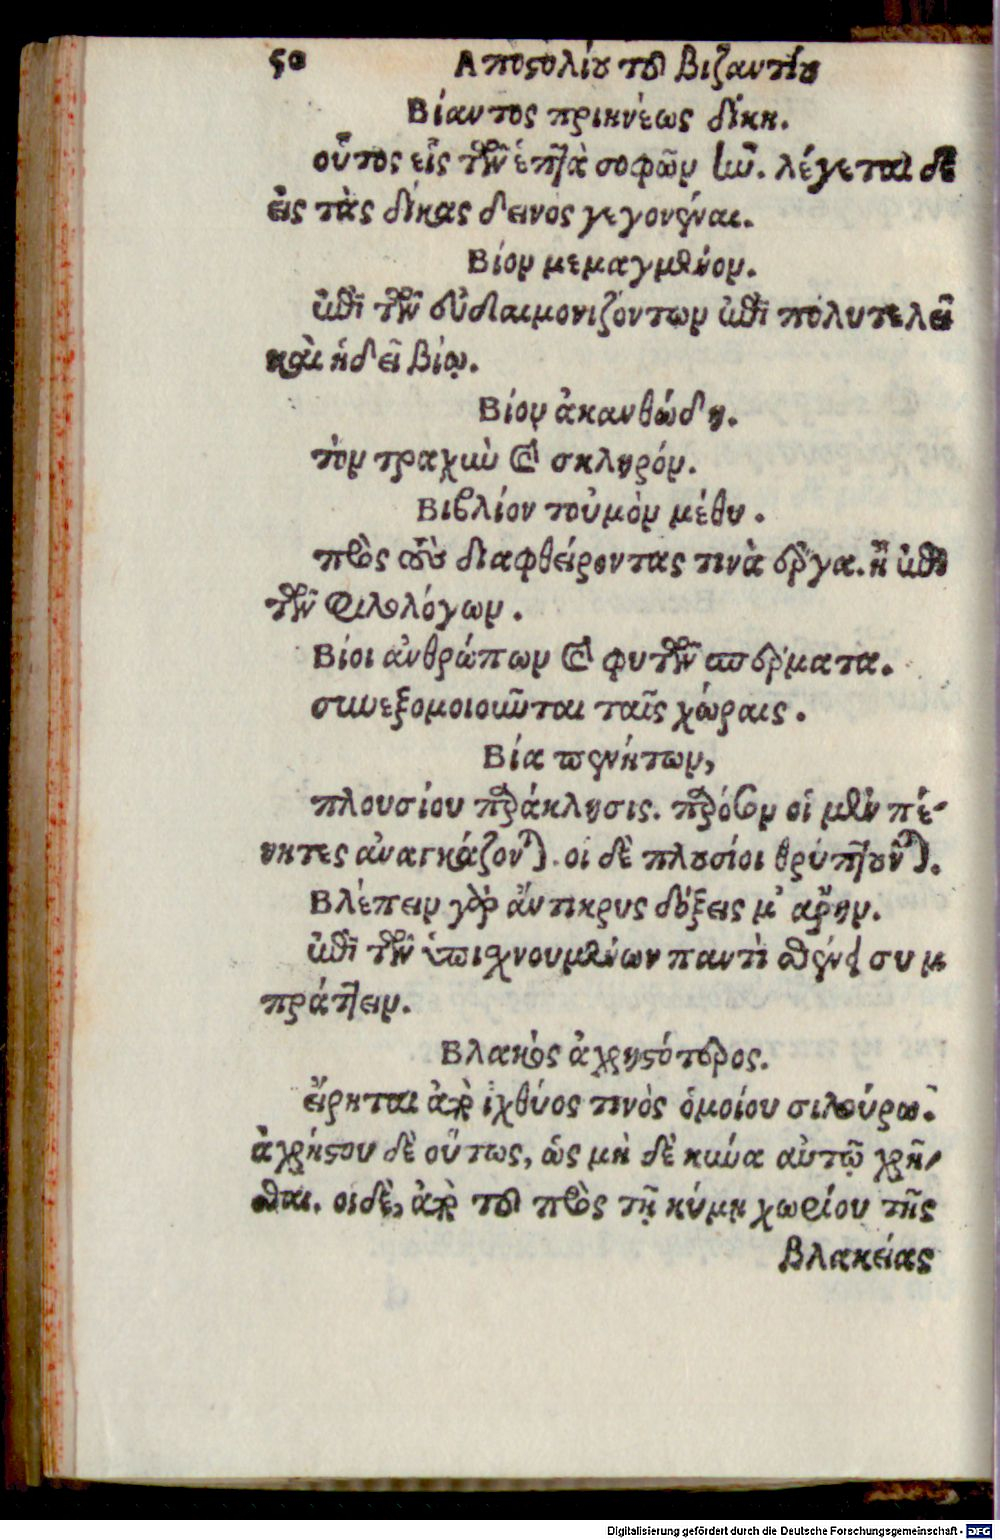 50 Αποστολίου τοῦ Βιζαντίου
Βίαντος πριηνέως δίκη.
οὗτος εἷς τῶν ἑπτὰ σοφῶν ἦν. λέγεται δὲ
εἰς τὰς δίκας δεινος γεγονέναι.
Βίον μεμαγμένον.
ἐπὶ τῶν εὐδαιμονιζόντων ἐπὶ πολυτελεῖ
καὶ ἡδεῖ βίῳ.
Βίον ἀκανθώδη.
τὸν τραχὺν καὶ σκληρόν.
Βιβλίον τοὐμὸν μέθυ.
πρὸς τοὺς διαφθείροντας τινὰ ἔργα. ἢ ἐπὶ
τῶν φιλολόγων.
Βίοι ἀνθρώπων καὶ φυτῶν σπέρματα.
συνεξομοιοῦνται ταῖς χώραις.
Βία πενήτων,
πλουσίου παράκλησις. παρόσον οἱ μὲν πέ-
νητες ἀναγκάζονται. οἱ δὲ πλούσιοι θρύπτονται.
Βλέπειν γὰρ ἄντικρυς δόξεις μ' αρην.
ἐπὶ τῶν ὑπισχνουμένων παντὶ σθένει συμ
πράττειν.
Βλακὸς ἀχρηστότερος.
εἴρηται ἀπὸ ἰχθύος τινὸς ὁμοίου σιλούρῳ.
ἀχρήστου δὲ οὕτως, ὡς μὴ δὲ κύνα αὐτῷ χρῆ-
σθαι. οἱ δὲ, ἀπὸ τοῦ πρὸς τῇ κύμῃ χωρίου τῆς
βλακείας
Digitalisierung gefördert durch die Deutsche Forschungsgemeinschaft - DFG